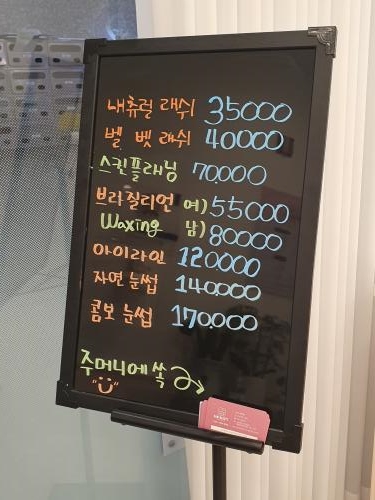 내츄럴 래쉬 35000
벨벳 래쉬 40000
스킨플래닝 70,000
브라질리언 여) 55000
Waxing 남) 80000
아이라인 120000
자연 눈썹 140000
콤보 눈썹 170000
주머니에 쏙